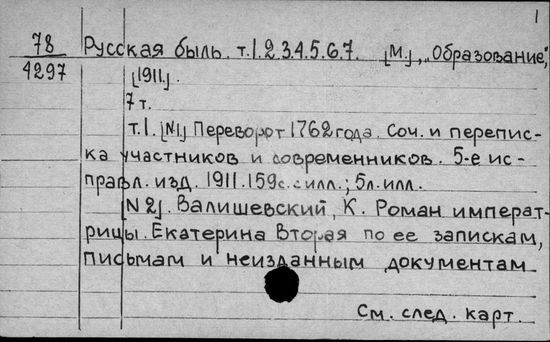 1
78 Русская быль. т.1.2.3.4.5.6.7. [М.], "Образование",
4297 [1911].
7 т.
т.1. [N1] Переворот 1762 года. Соч. и перепис-
ка участников и современников. 5-е ис-
правл. изд. 1911. 159с. с илл.; 5л. илл.
[N 2]. Валишевский, К. Роман императ-
рицы. Екатерина Вторая по ее запискам,
письмам и неизданным документам
См. след. карт.